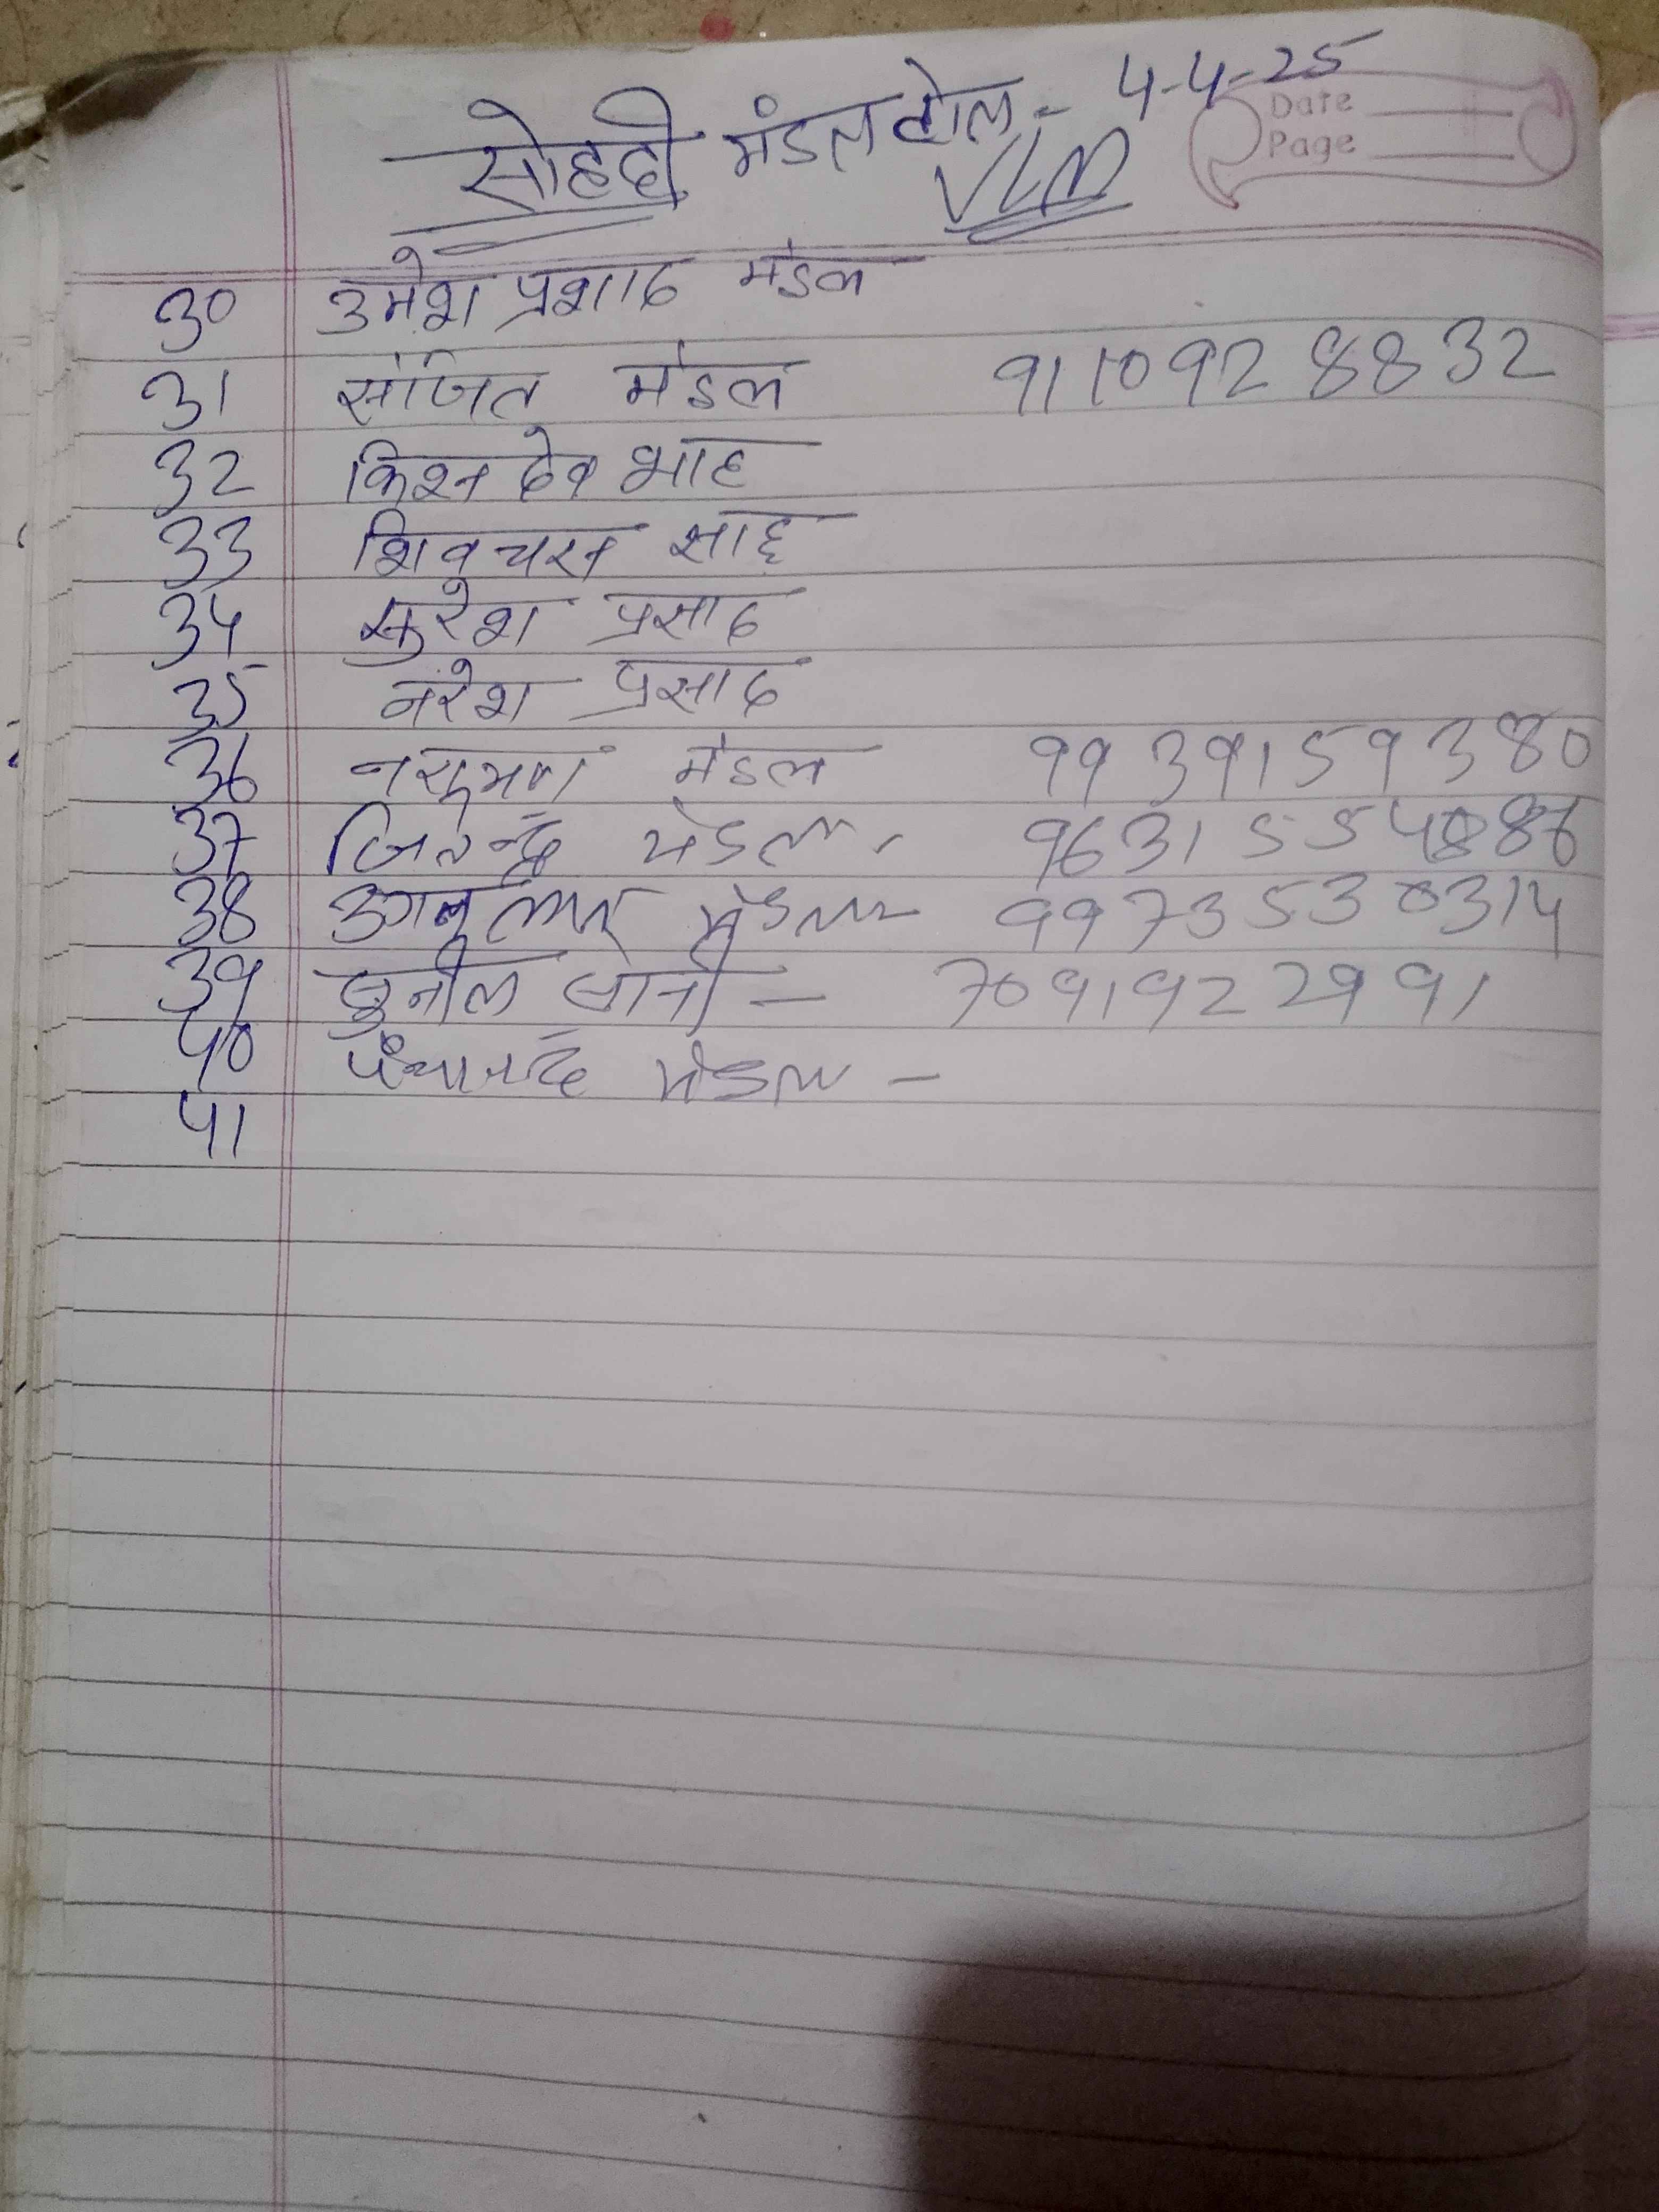 सोहदी मंडल टोल - 4-4-25
VLM
Date
Page
30 उमेश प्रशाद मंडल
31 संजित मंडल 9110928832
32 किश्न देव शाह
33 शिव चरन साह
34 सुरेश प्रसाद
35 नरेश प्रसाद
36 मंडल 9939159380
37 जितेन्द्र मंडल
38 मंडल
39 सुनील सोनी - 7091922991
40 मंडल -
41